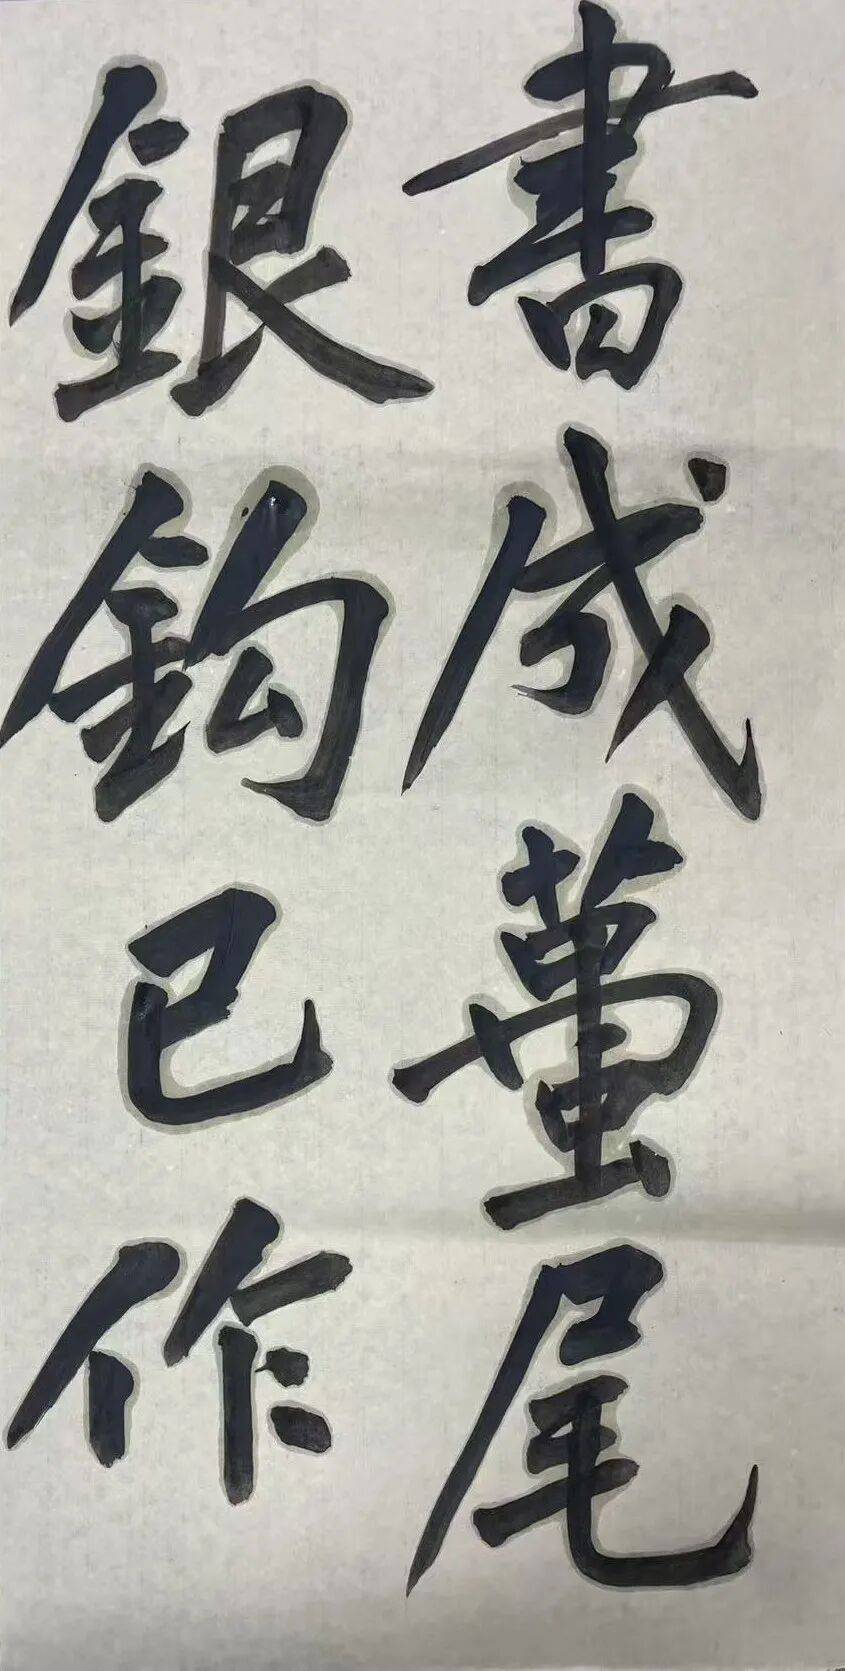 書成蠆尾
銀鈎已作